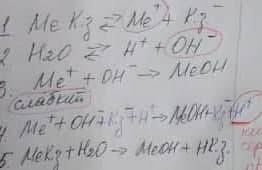 1 MeKz ⇄ Me⁺ + Kz⁻
2 H2O ⇄ H⁺ + OH⁻
3. Me⁺ + OH⁻ → MeOH
слабкий
4. Me⁺ + OH⁻ + Kz⁻ + H⁺ → MeOH + Kz⁻ + H⁺
5 MeKz + H2O → MeOH + HKz.